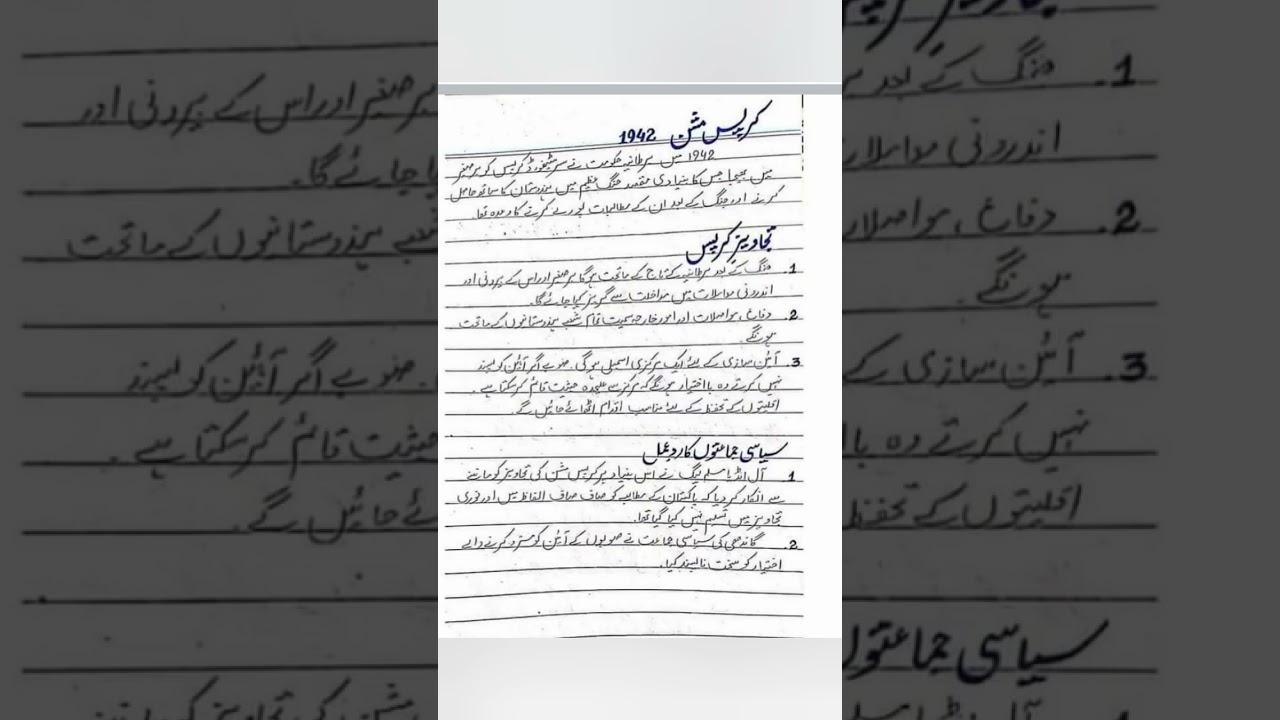 کرپس مشن 1942
1942 میں برطانیہ حکومت نے سر سٹیفورڈ کرپس کو برصغیر
میں بھیجا جس کا بنیادی مقصد جنگ عظیم میں ہندوستان کا ساتھ حاصل
کرنے اور جنگ کے بعد ان کے مطالبات پورے کرنے کا وعدہ تھا۔
تجاویز کرپس
1. جنگ کے بعد برطانیہ کے تاج کے ماتحت ہوگا برصغیر اور اس کے بیرونی اور
اندرونی معاملات میں مداخلت سے گریز کیا جائے گا۔
2. دفاع، مواصلات اور امور خارجہ سمیت تمام شعبے ہندوستانیوں کے ماتحت
ہونگے۔
3. آئین سازی کے لئے ایک مرکزی اسمبلی ہوگی۔ صوبے اگر آئین کو پسند
نہیں کرتے وہ بااختیار ہونگے کہ مرکز سے علیحدہ حیثیت قائم کر سکتا ہے۔
اقلیتوں کے تحفظ کے لئے مناسب اقدام اٹھائے جائیں گے۔
سیاسی جماعتوں کا ردعمل
1 آل انڈیا مسلم لیگ نے اس بنیاد پر کرپس مشن کی تجاویز کو ماننے
سے انکار کر دیا کہ پاکستان کے مطالبہ کو صاف صاف الفاظ میں اور فوری
تجاویز میں تسلیم نہیں کیا گیا تھا۔
2. گاندھی کی سیاسی جماعت نے صوبوں کے آئین کو مسترد کرنے والے
اختیار کو سخت ناپسند کیا۔